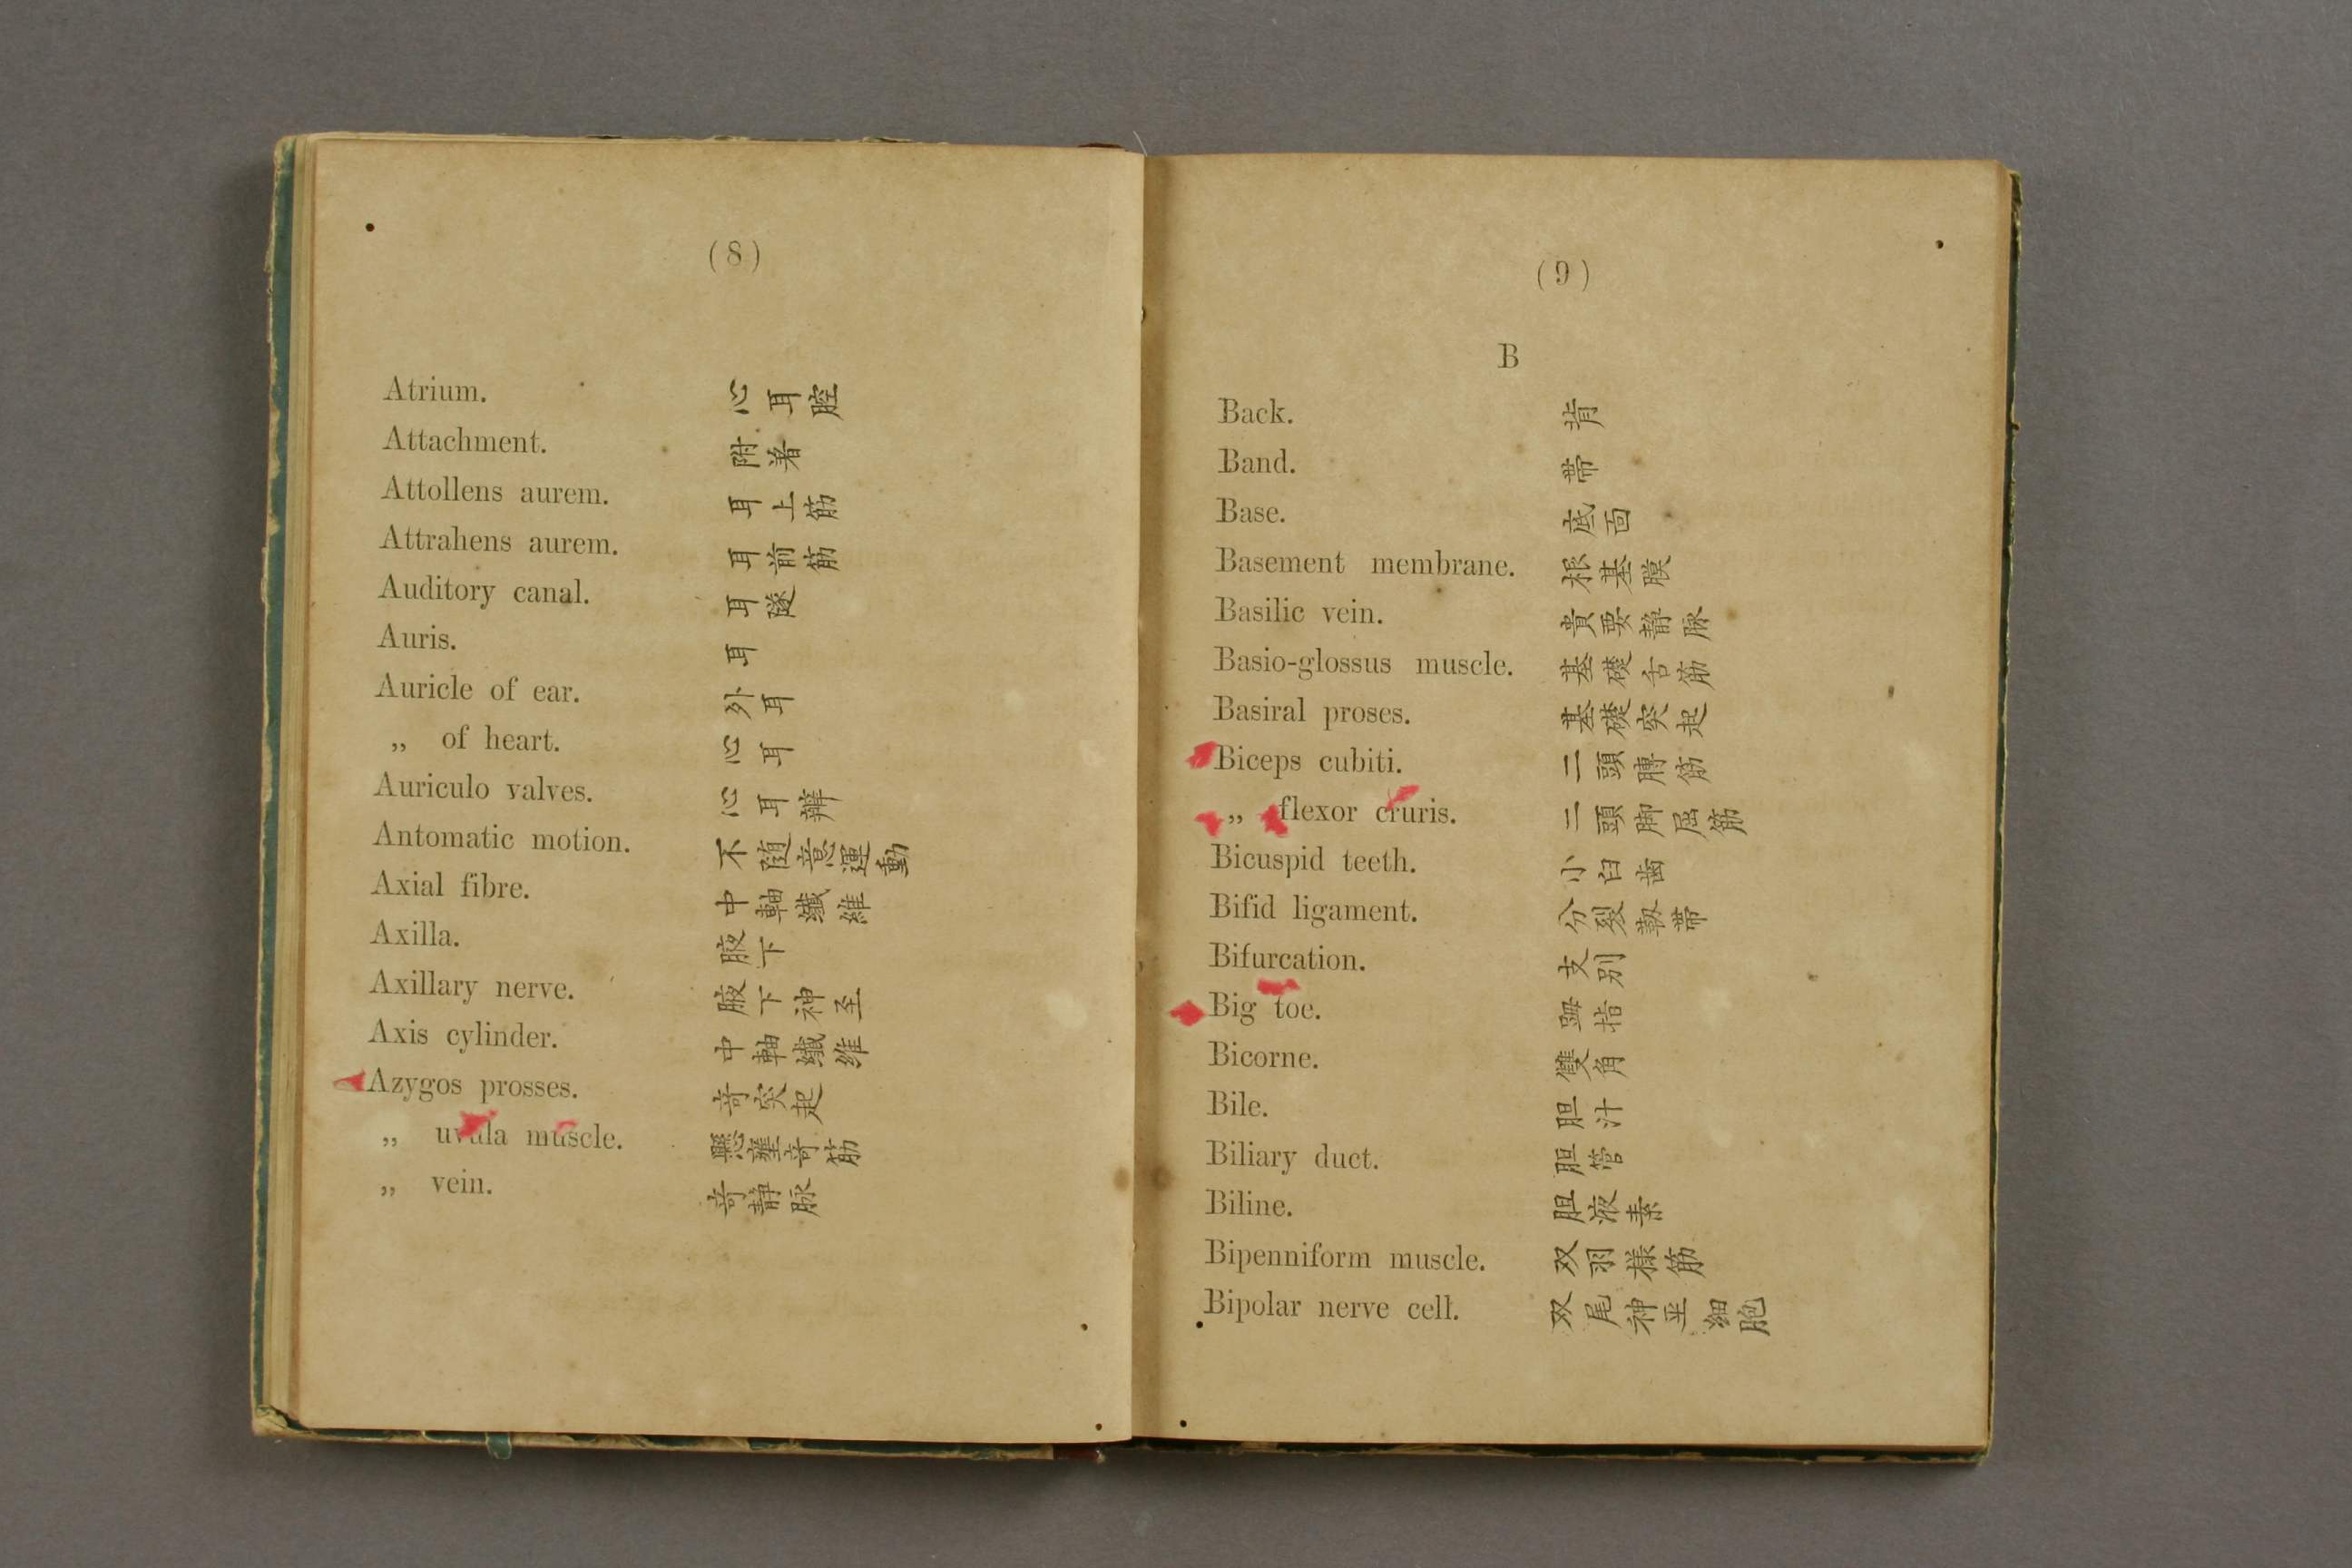 (8)
Atrium. 心耳腔
Attachment. 附著
Attollens aurem. 耳上筋
Attrahens aurem. 耳前筋
Auditory canal. 耳隧
Auris. 耳
Auricle of ear. 外耳
„ of heart. 心耳
Auriculo valves. 心耳辨
Antomatic motion. 不随意運動
Axial fibre. 中軸纖維
Axilla. 腋下
Axillary nerve. 腋下神圣
Axis cylinder. 中軸纖維
Azygos prosses. 竒突起
„ uvula muscle. 懸壅竒筋
„ vein. 竒静脉
(9)
B
Back. 背
Band. 帯
Base. 底面
Basement membrane. 根基膜
Basilic vein. 貴要静脉
Basio-glossus muscle. 基礎舌筋
Basiral proses. 基礎突起
Biceps cubiti. 二頭膊筋
„ flexor cruris. 二頭脚屈筋
Bicuspid teeth. 小臼歯
Bifid ligament. 分裂靱帯
Bifurcation. 支别
Big toe. 踇指
Bicorne. 雙角
Bile. 胆汁
Biliary duct. 胆管
Biline. 胆液素
Bipenniform muscle. 双羽樣筋
Bipolar nerve cell. 双尾神圣細胞